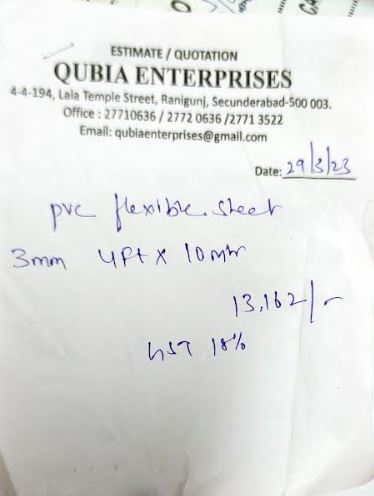 ESTIMATE / QUOTATION
QUBIA ENTERPRISES
4-4-194, Lala Temple Street, Ranigunj, Secunderabad-500 003.
Office : 27710636 / 2772 0636 /2771 3522
Email: qubiaenterprises@gmail.com
Date: 29/3/23
pvc flexible sheet
3mm 4Ft X 10mtr
13,162/-
GST 18%